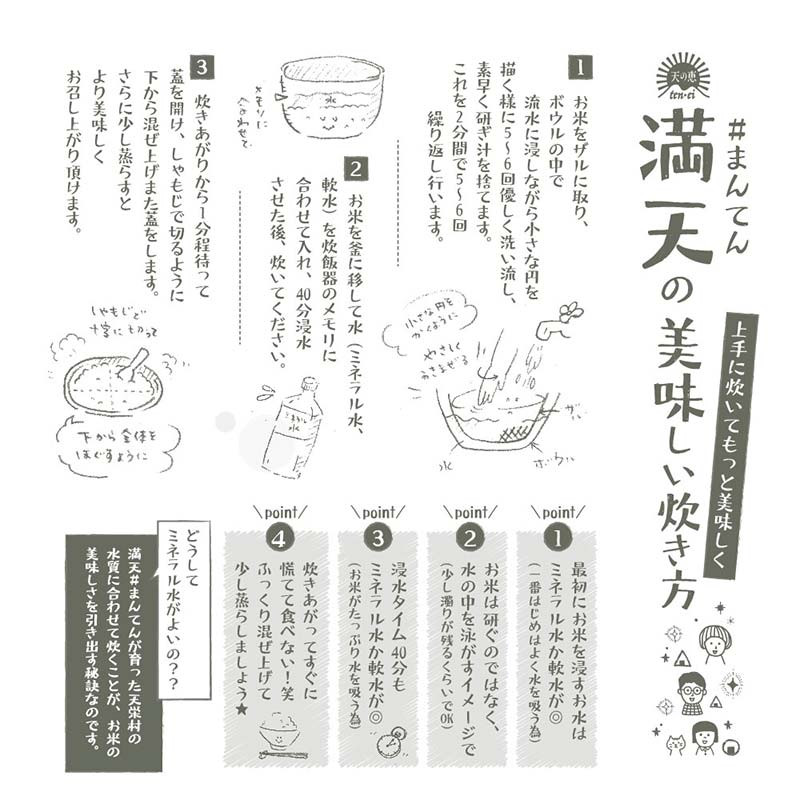 天の恵
ten-ei
#まんてん
満天の美味しい炊き方
上手に炊いてもっと美味しく
1
お米をザルに取り、
ボウルの中で
流水に浸しながら小さな円を
描く様に5~6回優しく洗い流し、
素早く研ぎ汁を捨てます。
これを2分間で5~6回
繰り返し行います。
小さな円を
かくように
やさしく
かきまぜる
ザル
ボウル
水
水
メモリに
合わせて
2
お米を釜に移して水(ミネラル水、
軟水)を炊飯器のメモリに
合わせて入れ、40分浸水
させた後、炊いてください。
水
3
炊きあがりから1分程待って
蓋を開け、しゃもじで切るように
下から混ぜ上げまた蓋をします。
さらに少し蒸らすと
より美味しく
お召し上がり頂けます。
しゃもじで
十字に切って
下から全体を
ほぐすように
\point/
1
最初にお米を浸すお水は
ミネラル水か軟水が◎
(一番はじめはよく水を吸う為)
\point/
2
お米は研ぐのではなく、
水の中を泳がすイメージで
(少し濁りが残るくらいでOK)
\point/
3
浸水タイム40分も
ミネラル水か軟水が◎
(お米がたっぷり水を吸う為)
\point/
4
炊きあがってすぐに
慌てて食べない!笑
ふっくり混ぜ上げて
少し蒸らしましょう★
どうして
ミネラル水がよいの??
満天#まんてんが育った天栄村の
水質に合わせて炊くことが、お米の
美味しさを引き出す秘訣なのです。